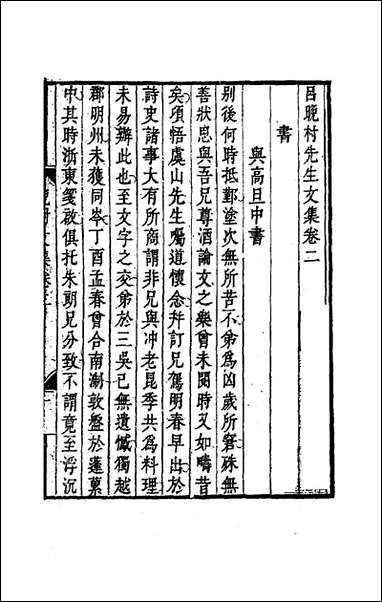 呂晚村先生文集卷二
書
與高旦中書
別後何時抵鄞塗次無所苦不弟爲凶歲所窘殊無
善狀思與吾兄尊酒論文之樂曾未閱時又如疇昔
矣項悟虞山先生囑道懷念幷訂兄駕明春早出於
詩史諸事大有所商謂非兄與冲老昆季共爲料理
未易辦此也至文字之交弟於三吳已無遺憾獨越
郡明州未獲同岑丁酉孟春曾合南浙敦盤於蓬蓽
中其時浙東箋啟俱托朱朗兄分致不謂竟至浮沉